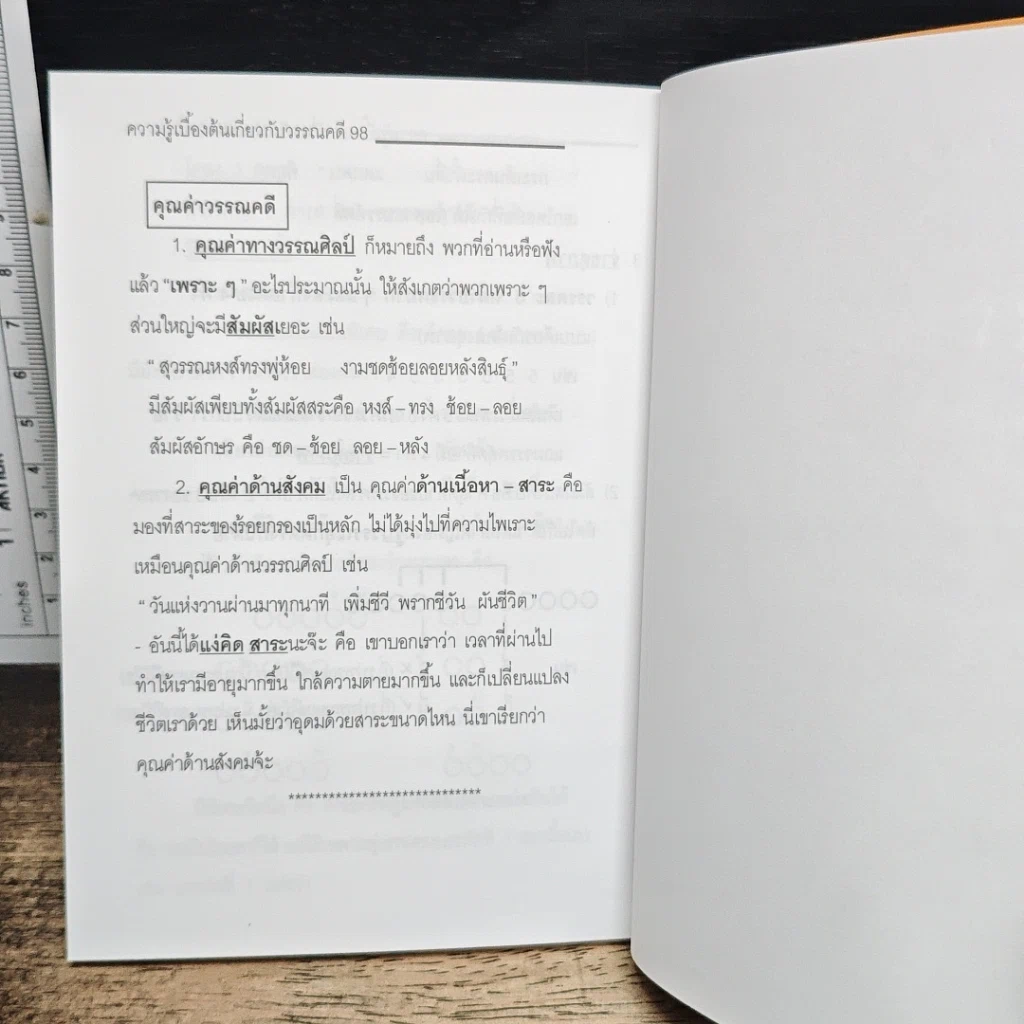 ความรู้เบื้องต้นเกี่ยวกับวรรณคดี 98
คุณค่าวรรณคดี
1. คุณค่าทางวรรณศิลป์ ก็หมายถึง พวกที่อ่านหรือฟัง
แล้ว “เพราะ ๆ ” อะไรประมาณนั้น ให้สังเกตว่าพวกเพราะ ๆ
ส่วนใหญ่จะมีสัมผัสเยอะ เช่น
“ สุวรรณหงส์ทรงพู่ห้อย งามชดช้อยลอยหลังสินธุ์ ”
มีสัมผัสเพียบทั้งสัมผัสสระคือ หงส์ – ทรง ช้อย – ลอย
สัมผัสอักษร คือ ชด – ช้อย ลอย – หลัง
2. คุณค่าด้านสังคม เป็น คุณค่าด้านเนื้อหา – สาระ คือ
มองที่สาระของร้อยกรองเป็นหลัก ไม่ได้มุ่งไปที่ความไพเราะ
เหมือนคุณค่าด้านวรรณศิลป์ เช่น
“ วันแห่งวานผ่านมาทุกนาที เพิ่มชีวี พรากชีวัน ผันชีวิต ”
- อันนี้ได้แง่คิด สาระนะจ๊ะ คือ เขาบอกเราว่า เวลาที่ผ่านไป
ทำให้เรามีอายุมากขึ้น ใกล้ความตายมากขึ้น และก็เปลี่ยนแปลง
ชีวิตเราด้วย เห็นมั้ยว่าอุดมด้วยสาระขนาดไหน นี่เขาเรียกว่า
คุณค่าด้านสังคมจ้ะ
*****************************
inches
1
2
3
4
5
6
7
8